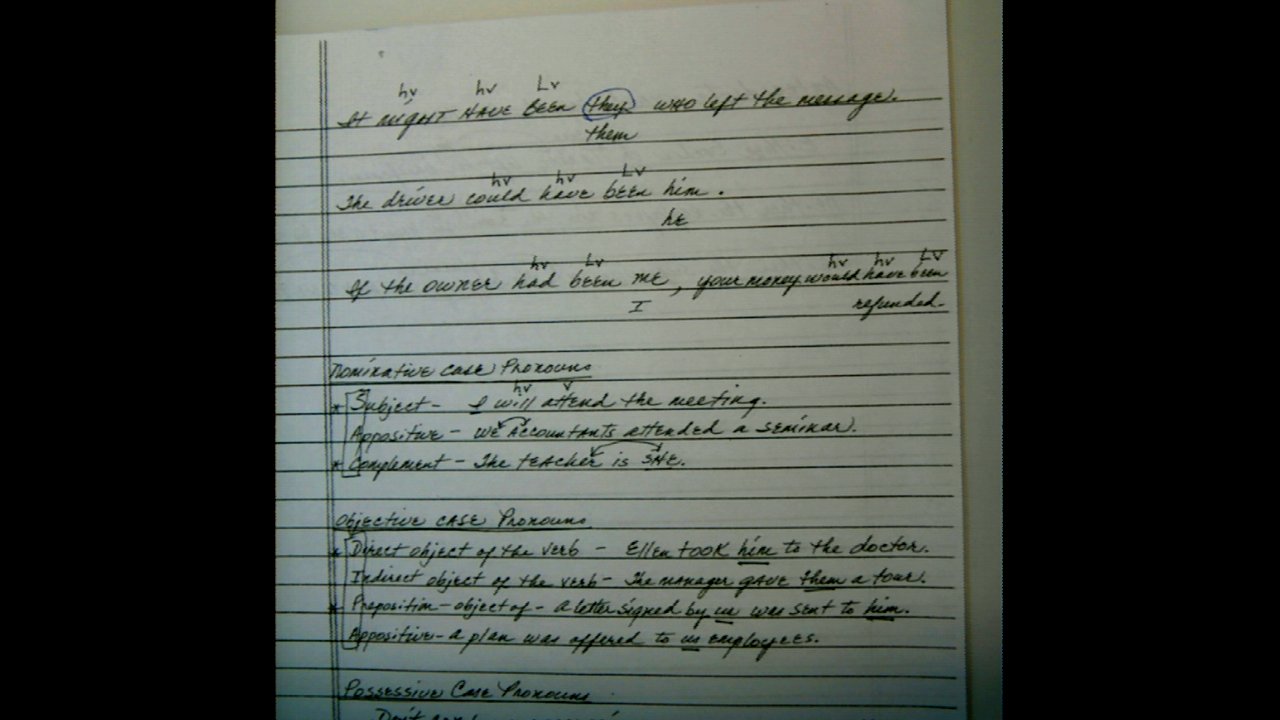 hv hv Lv
It might HAVE BEEN they who left the message.
them
hv hv LV
The driver could have been him.
he
hv Lv hv hv LV
If the owner had been me, your money would have been
I refunded.
Nominative case Pronouns
hv v
* Subject - I will attend the meeting.
Appositive - WE Accountants attended a seminar.
* Complement - The teacher is SHE.
Objective CASE Pronouns
* Direct object of the verb - Ellen took him to the doctor.
Indirect object of the verb - The manager gave them a tour.
* Preposition - object of - a letter signed by us was sent to him.
Appositive - a plan was offered to us employees.
Possessive Case Pronouns